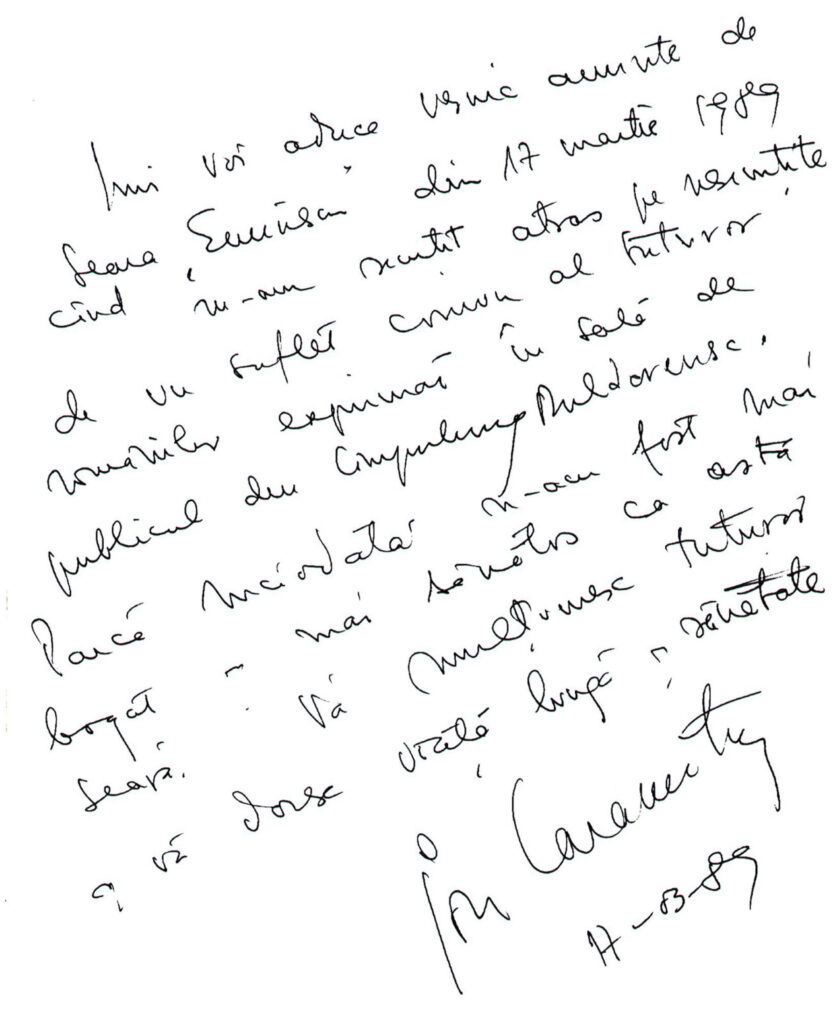 Îmi voi aduce veșnic aminte de
seara „Eminescu” din 17 martie 1989
cînd m-am simțit atras pe nesimțite
de un suflet comun al tuturor
românilor exprimat în sală de
publicul din Cîmpulung Moldovenesc.
Parcă niciodată n-am fost mai
bogat și mai sănătos ca astă
seară. Vă mulțumesc tuturor
și vă doresc viață lungă și sănătate
Ion Caramitru
17-03-89